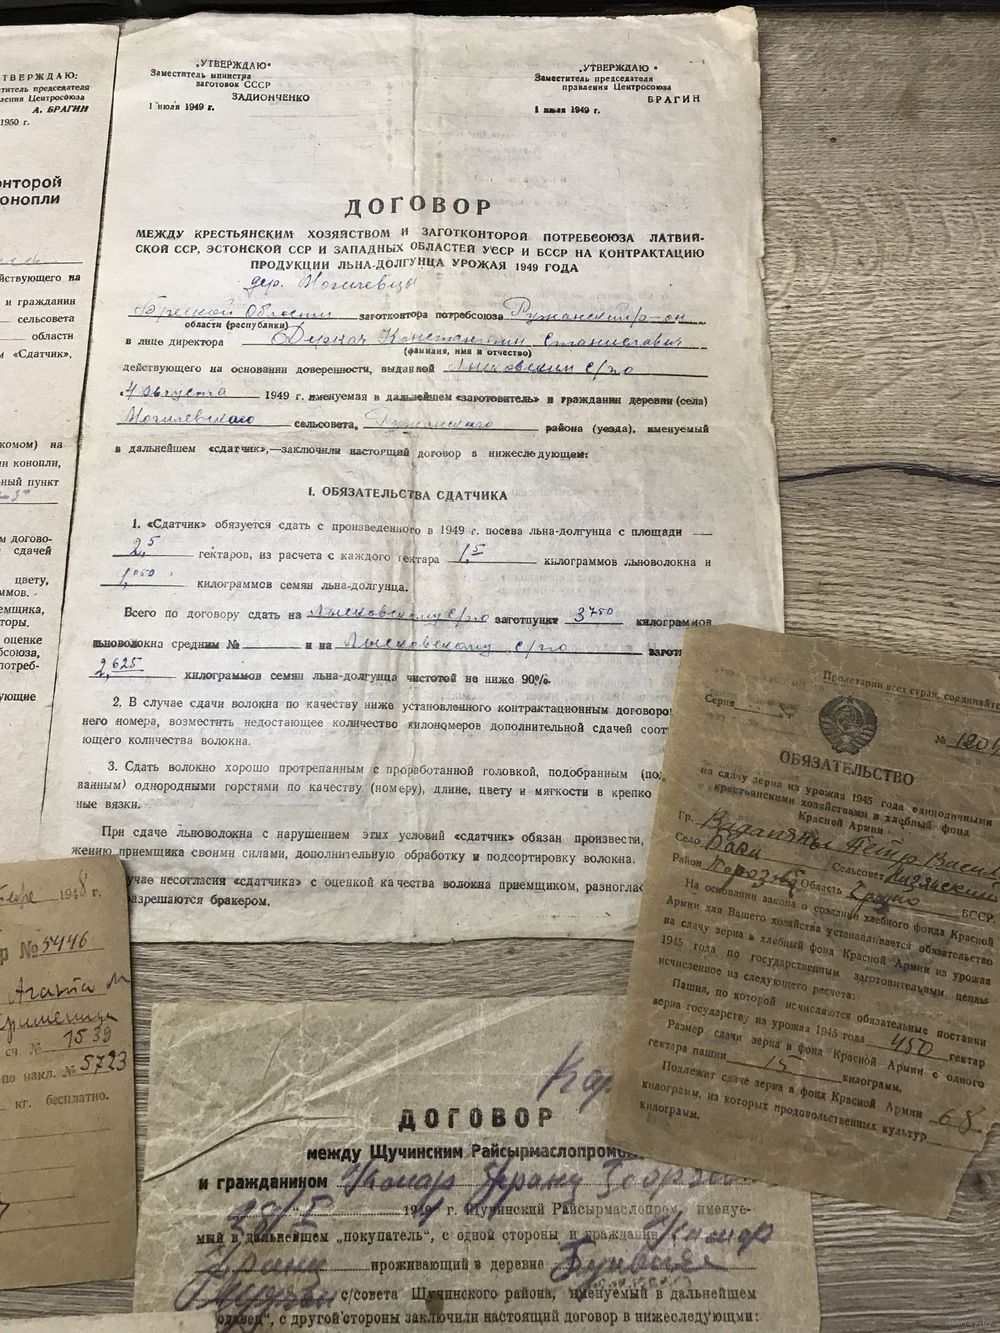 ТВЕРЖДАЮ:
титель председателя
ления Центросоюза
А. БРАГИН
1950 г.
онторой
онопли
йствующего на
и гражданин
сельсовета
области
м «Сдатчик»,
комом) на
ин конопли,
ный пункт
м догово-
сдачей
цвету,
ммов.
емщика,
торы.
оценке
бсоюза,
потреб-
ующие
„УТВЕРЖДАЮ“
Заместитель министра
заготовок СССР
ЗАДИОНЧЕНКО
1 июля 1949 г.
„УТВЕРЖДАЮ“
Заместитель председателя
правления Центросоюза
БРАГИН
1 июля 1949 г.
ДОГОВОР
МЕЖДУ КРЕСТЬЯНСКИМ ХОЗЯЙСТВОМ И ЗАГОТКОНТОРОЙ ПОТРЕБСОЮЗА ЛАТВИЙ-
СКОЙ ССР, ЭСТОНСКОЙ ССР И ЗАПАДНЫХ ОБЛАСТЕЙ УССР И БССР НА КОНТРАКТАЦИЮ
ПРОДУКЦИИ ЛЬНА-ДОЛГУНЦА УРОЖАЯ 1949 ГОДА
дер. Могилевцы
Брестской Области заготконтора потребсоюза Ружанский р-он
области (республики)
в лице директора Деркач Константин Станиславич
(фамилия, имя и отчество)
действующего на основании доверенности, выданной Лысковским с/по
„4 августа 1949 г. именуемая в дальнейшем «заготовитель» и гражданин деревни (села)
Могилевского сельсовета, Ружанского района (уезда), именуемый
в дальнейшем «сдатчик»,—заключили настоящий договор в нижеследующем:
I. ОБЯЗАТЕЛЬСТВА СДАТЧИКА
1. «Сдатчик» обязуется сдать с произведенного в 1949 г. посева льна-долгунца с площади
2,5 гектаров, из расчета с каждого гектара 1,5 килограммов льноволокна и
1,050 килограммов семян льна-долгунца.
Всего по договору сдать на Лысковскому с/по заготпункт 3750 килограммов
льноволокна средним № и на Лысковскому с/по загот
2,625 килограммов семян льна-долгунца чистотой не ниже 90%.
2. В случае сдачи волокна по качеству ниже установленного контрактационным договоро
него номера, возместить недостающее количество килономеров дополнительной сдачей соот
ющего количества волокна.
3. Сдать волокно хорошо протрепанным с проработанной головкой, подобранным (по
ванным) однородными горстями по качеству (номеру), длине, цвету и мягкости в крепко
ные вязки.
При сдаче льноволокна с нарушением этих условий «сдатчик» обязан произвести,
жению приемщика своими силами, дополнительную обработку и подсортировку волокна.
учае несогласия «сдатчика» с оценкой качества волокна приемщиком, разноглас
разрешаются бракером.
Пролетарии всех стран, соединяйтесь
Серия
№ 120
ОБЯЗАТЕЛЬСТВО
на сдачу зерна из урожая 1945 года единоличными
крестьянскими хозяйствами в хлебный фонд
Красной Армии
Гр. Петр Васил
Село Сельсовет
Район Область БССР.
На основании закона о создании хлебного фонда Красной
Армии для Вашего хозяйства устанавливается обязательство
на сдачу зерна в хлебный фонд Красной Армии из урожая
1945 года по государственным заготовительным ценам,
исчисленное из следующего расчета:
Пашня, по которой исчисляются обязательные поставки
зерна государству из урожая 1945 года 450 гектар
Размер сдачи зерна в фонд Красной Армии с одного
гектара пашни 15 килограмм.
Подлежит сдаче зерна в фонд Красной Армии 68
килограмм, из которых продовольственных культур
килограмм.
1948 г.
р № 5446
Агата
сч. № 1539
по накл. № 5723
кг. бесплатно.
ДОГОВОР
между Щучинским Райсырмаслопром
и гражданином
28/I 1949 г. Щучинский Райсырмаслопром, именуе-
мый в дальнейшем „покупатель“, с одной стороны и гражданин
проживающий в деревне
с/совета Щучинского района, именуемый в дальнейшем
с другой стороны заключили настоящий договор в нижеследующем:
www.ay.by